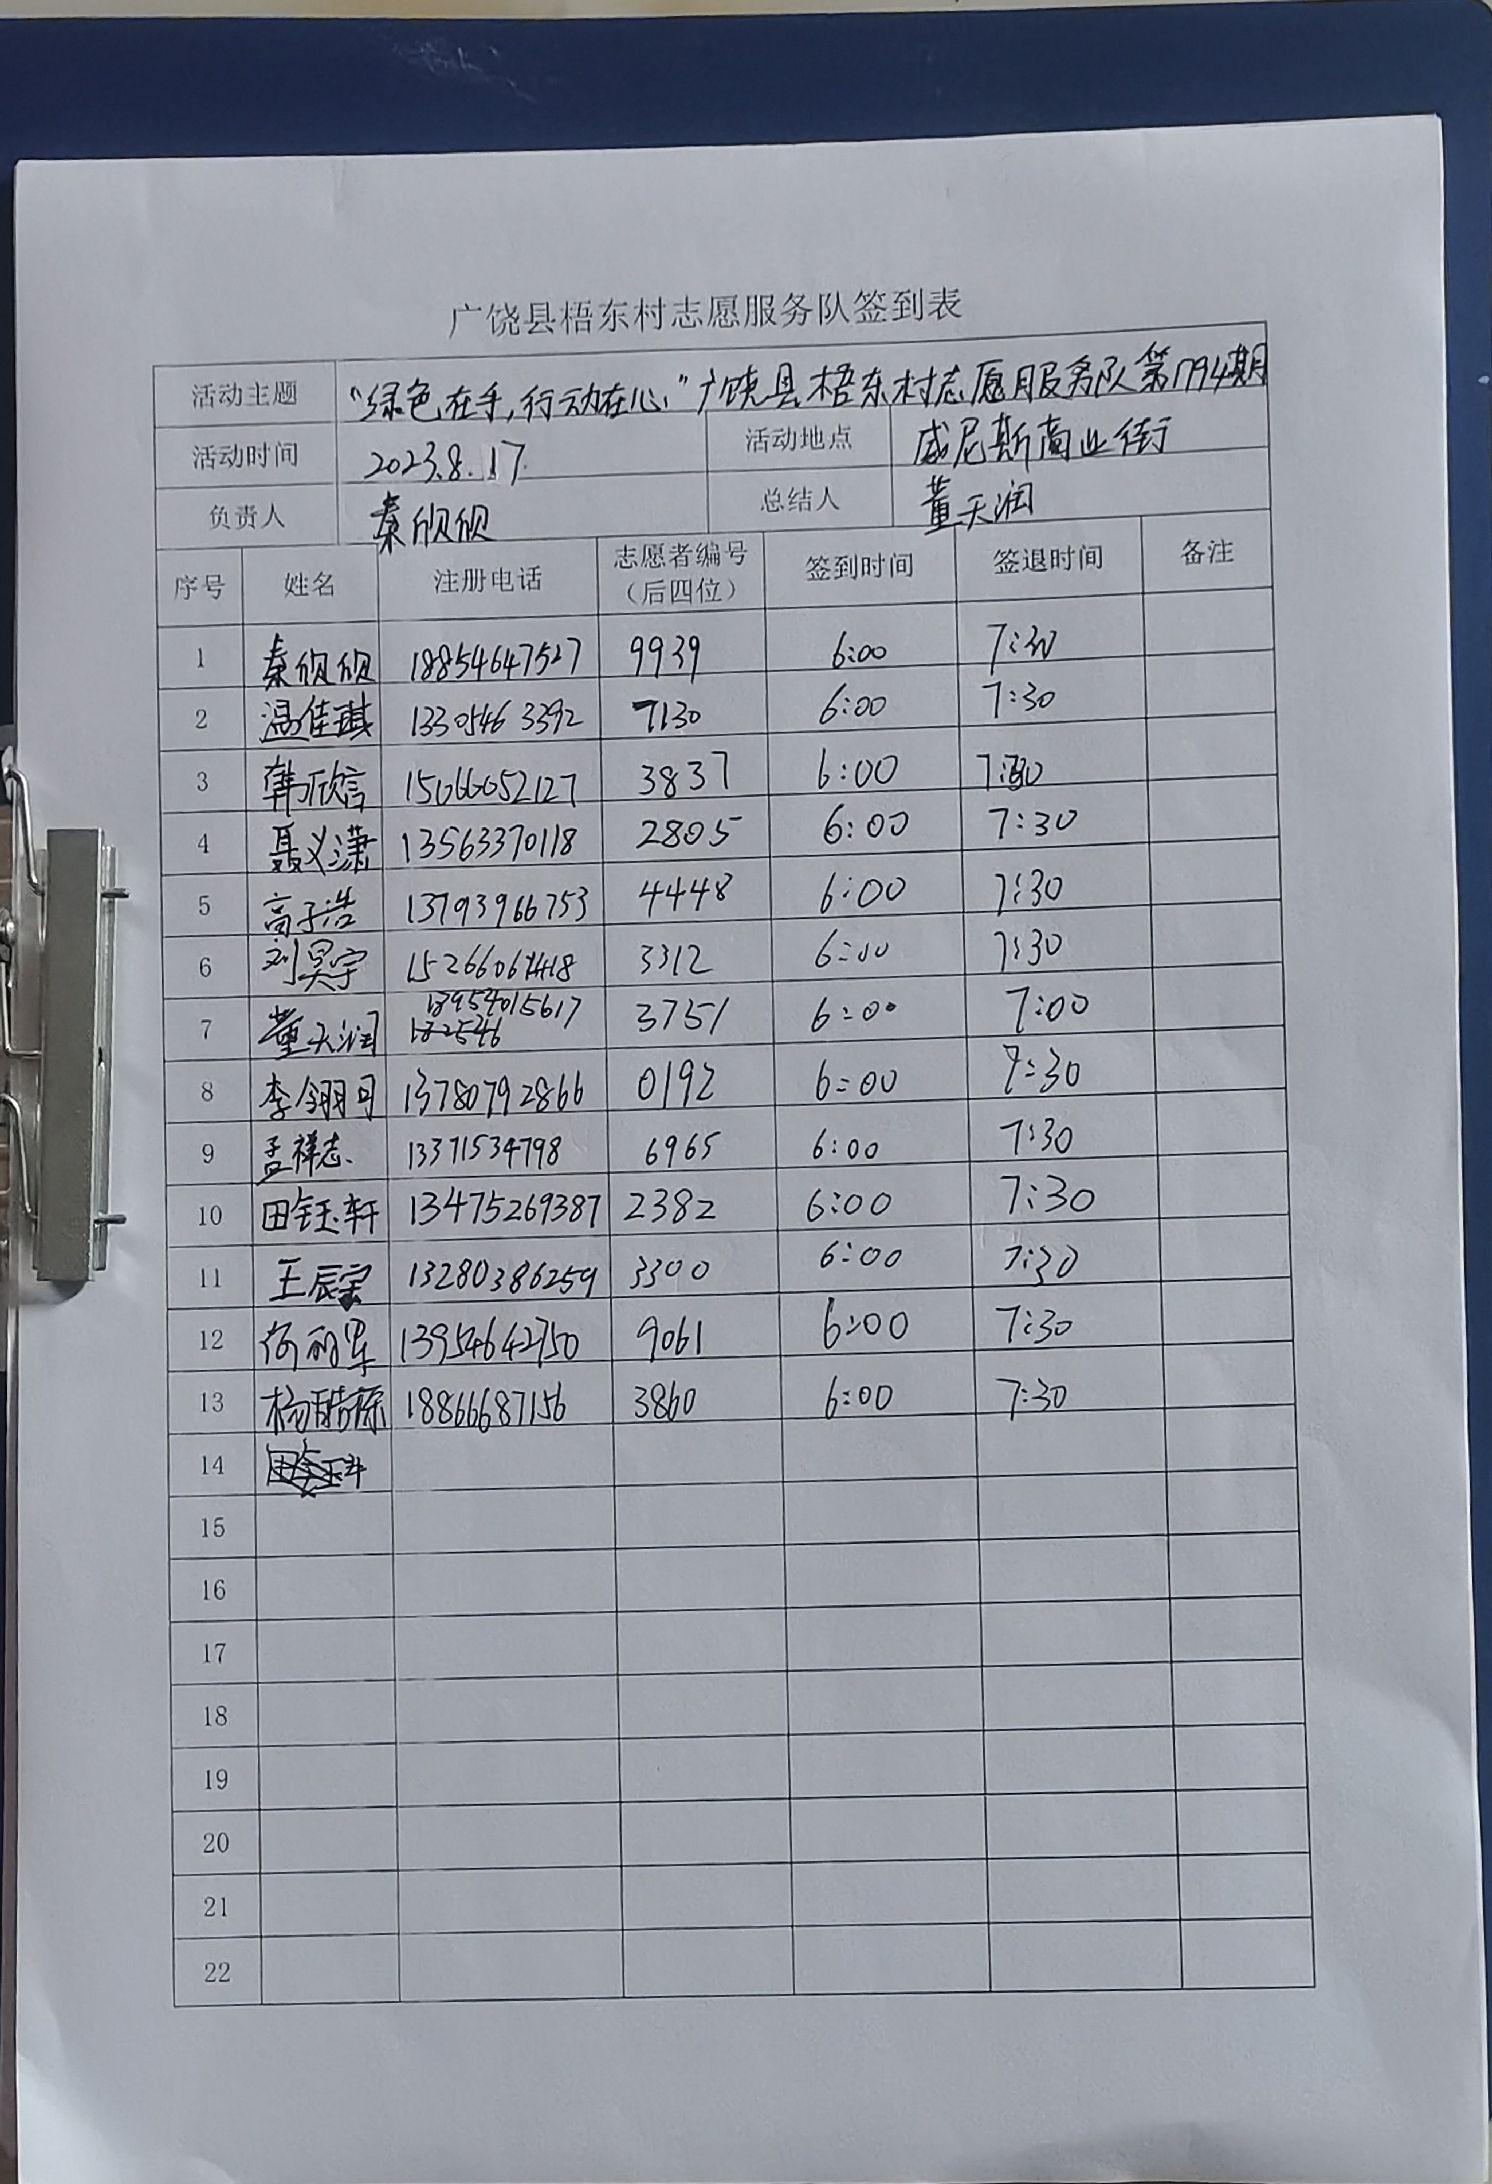 广饶县梧东村志愿服务队签到表
活动主题 “绿色在手,行动在心”广饶县梧东村志愿服务队第1794期
活动时间 2023.8.17 活动地点 威尼斯商业街
负责人 秦欣欣 总结人 董天润
序号 姓名 注册电话 志愿者编号（后四位） 签到时间 签退时间 备注
1 秦欣欣 18854647527 9939 6:00 7:30
2 温佳琪 13305463392 7130 6:00 7:30
3 韩欣言 15066052127 3837 6:00 7:30
4 聂义潇 13563370118 2805 6:00 7:30
5 高子浩 13793966753 4448 6:00 7:30
6 刘昊宇 3312 6:00 7:30
7 董天润 18954015617 3751 6:00 7:00
8 李翎可 13780792866 0192 6:00 7:30
9 孟祥志 13371534798 6965 6:00 7:30
10 田钰轩 13475269387 2382 6:00 7:30
11 王辰宝 13280386259 3300 6:00 7:30
12 13954642750 9061 6:00 7:30
13 18866687156 3860 6:00 7:30
14
15
16
17
18
19
20
21
22